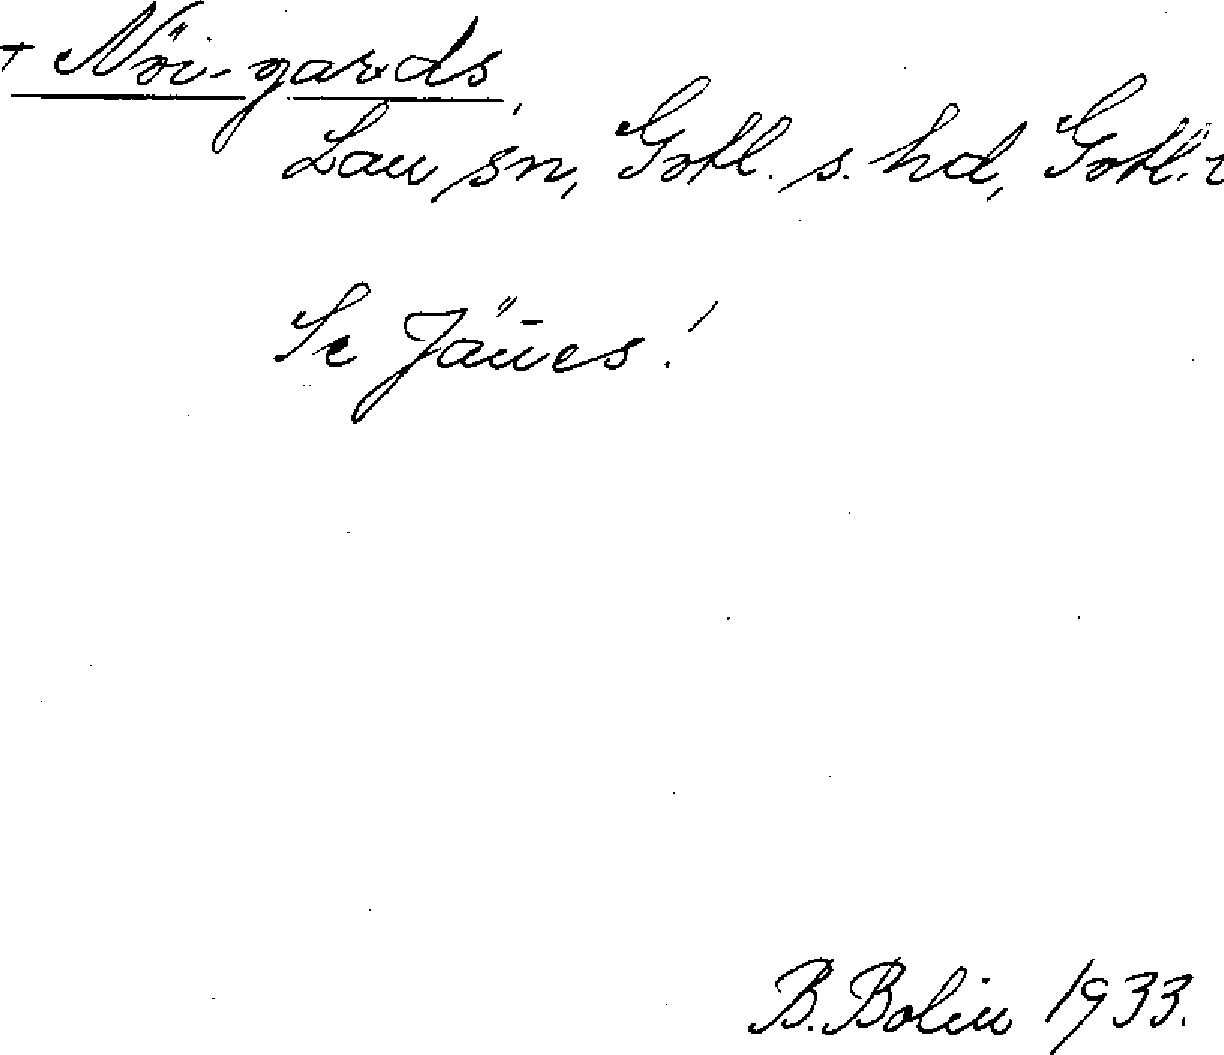 + Nöi-gards,
Lau sn, Gotl. s. hd, Gotl. l
Se Jäues!
B. Bolin 1933.